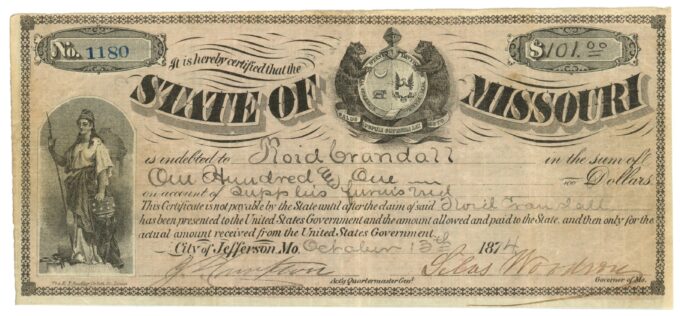 No. 1180
$101.00
It is hereby certified that the
STATE OF MISSOURI
is indebted to Roid Crandall in the sum of
One Hundred and One Dollars
on account of supplies furnished
This Certificate is not payable by the State until after the claim of said Roid Crandall
has been presented to the United States Government and the amount allowed and paid to the State, and then only for the
actual amount received from the United States Government.
City of Jefferson Mo. October 13th 1874
Silas Woodson
Actg Quartermaster Genl. Governor of Mo.